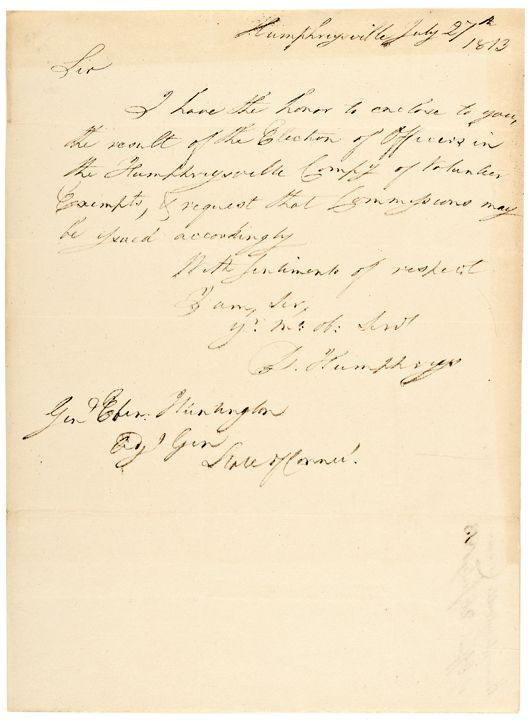 Humphreysville July 27th
1813
Sir
I have the honor to enclose to you,
the result of the Election of Officers in
the Humphreysville Compy of Volunteer
Exempts, & request that Commissions may
be issued accordingly
With Sentiments of respect
I am, Sir,
yr. mo: ob: Servt
D. Humphreys
Genl Eben. Huntington
Adjt Gen
State of Connect.